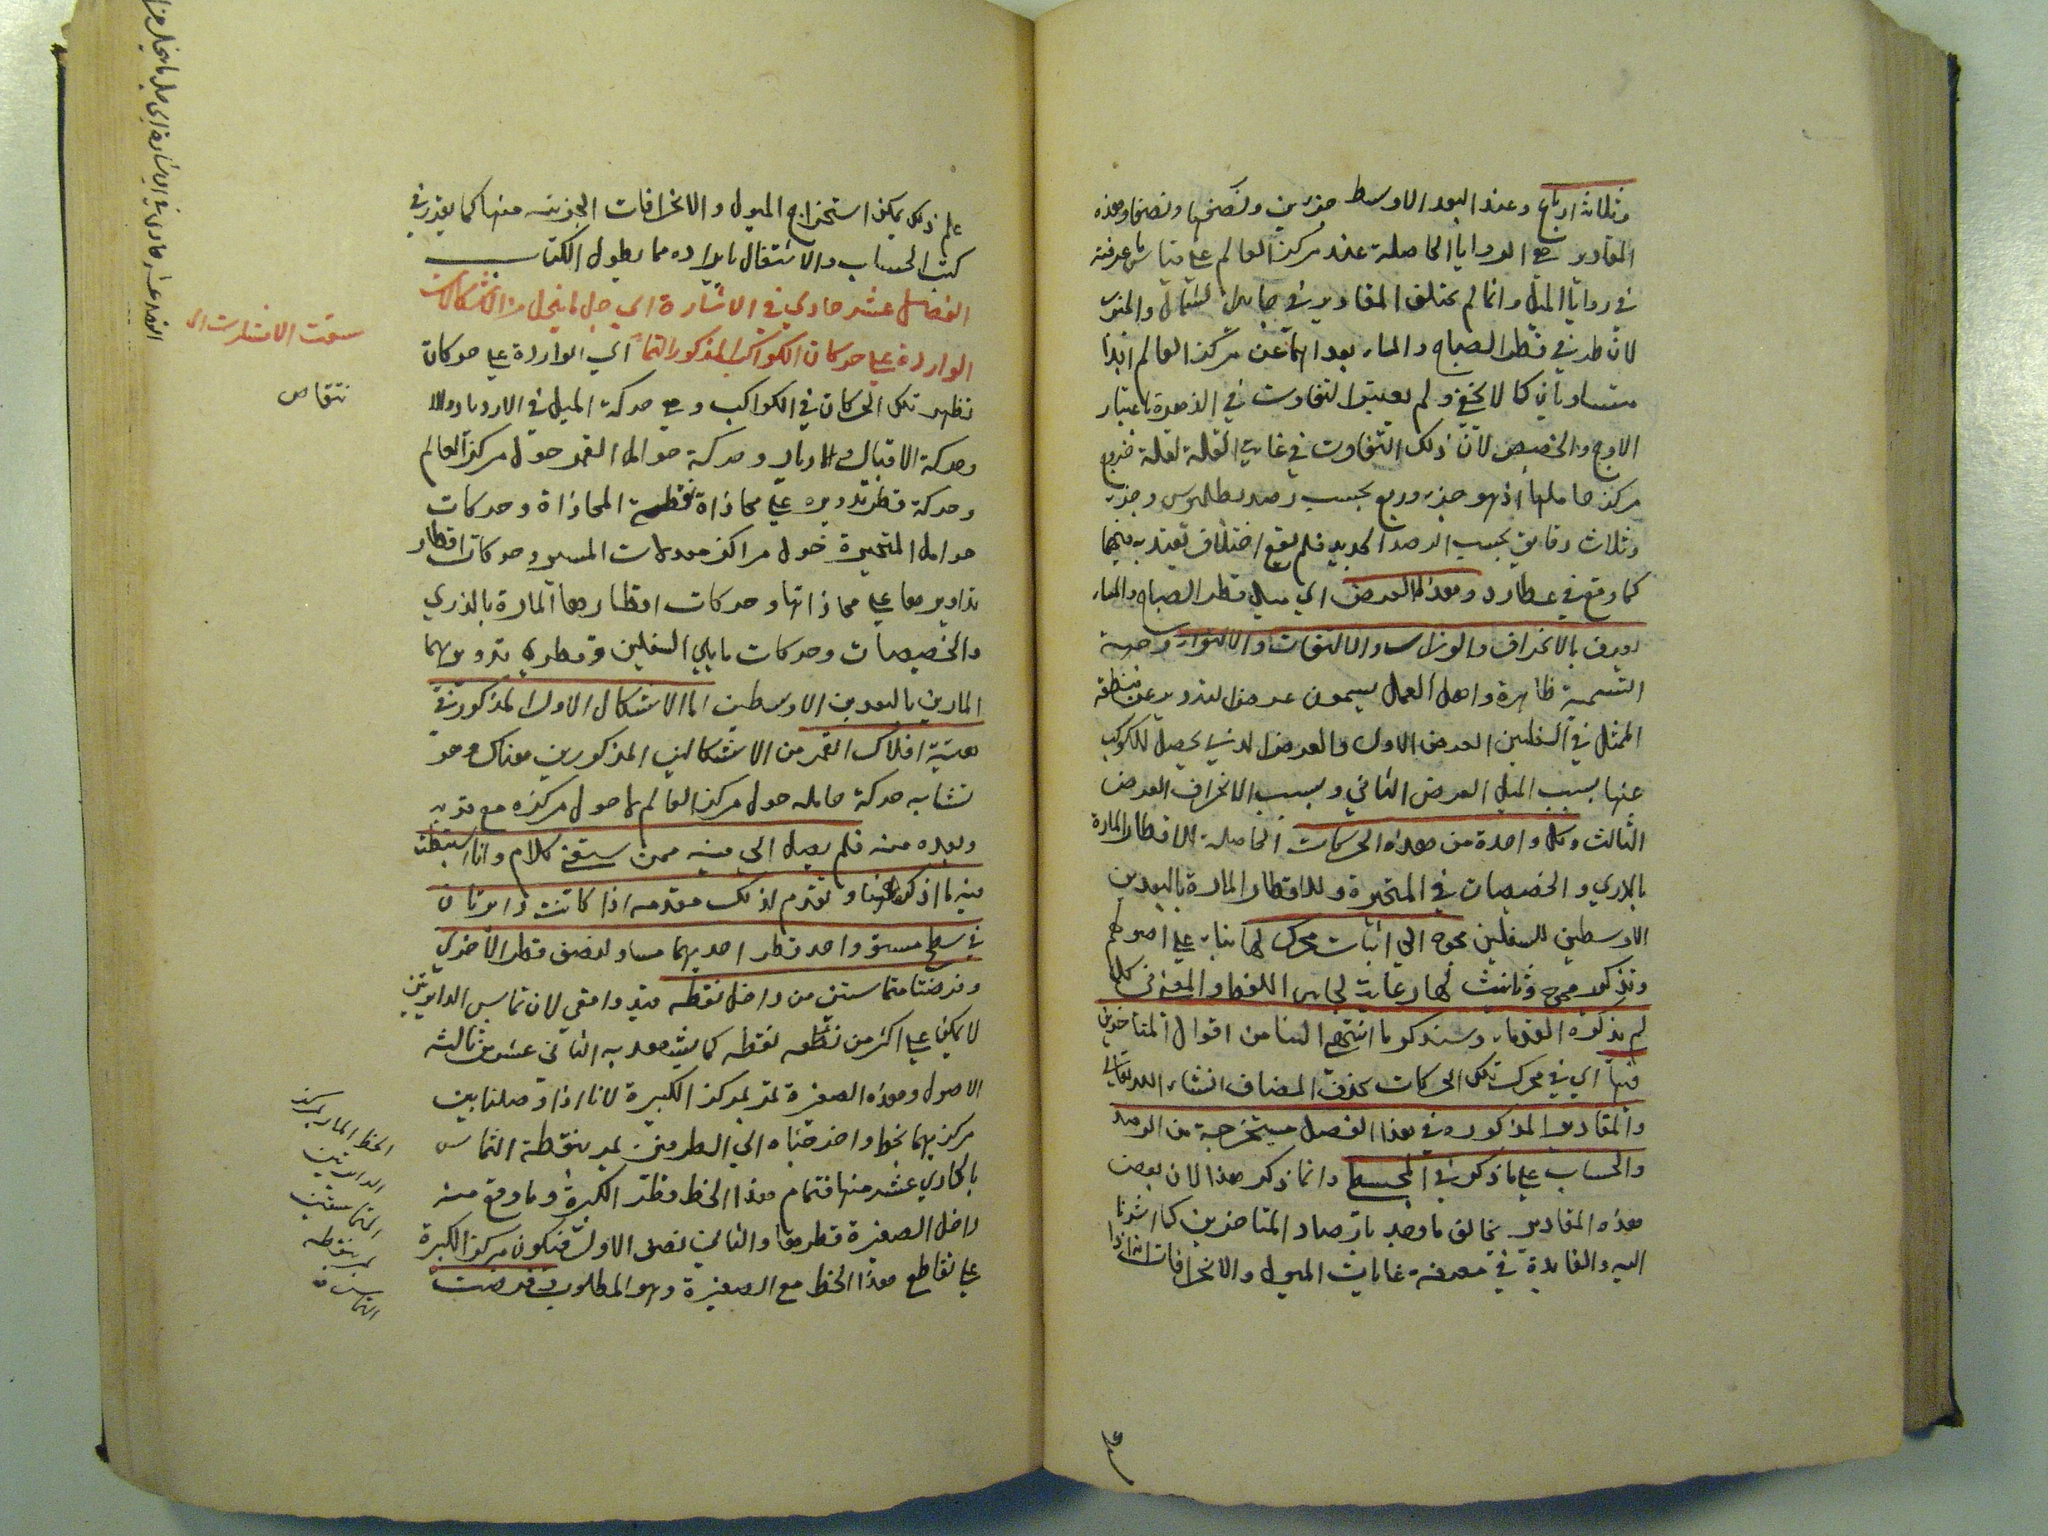 وثلاثة ارباع وعند البعد الاوسط جزءين ونصفها ونصفا وهذه
المقادير هي الزوايا الحاصلة عند مركز العالم على قياس ما عرفته
في زوايا الميل وانما لم يختلف المقادير في جانبى الشمال والجنوب
لان طرفي قطر الصباح والمساء بعداهما عن مركز العالم ابدا
متساويان كما لا يخفى ولم يعتبر التفاوت في الزهرة باعتبار
الاوج والحضيض لان ذلك التفاوت في غاية القلة لقلة خروج
مركز حاملها اذ هو جزء وربع بحسب رصد بطلميوس وجزء
وثلاث دقايق بحسب الرصد الجديد فلم يقع اختلاف يعتد به فيها
كما وقع في عطارد وهذا العرض اي ميل قطر الصباح والمساء
يعرف بالانحراف والوراب والالتفات والالتواء وجهة
التسمية ظاهرة واهل العمل يسمون عرض التدوير عن منطقة
الممثل في السفليين العرض الاول والعرض الذي يحصل للكوكب
عنها بسبب الميل العرض الثاني وبسبب الانحراف العرض
الثالث وكل واحدة من هذه الحركات الحاصلة للاقطار المارة
بالذرى والحضيضات في المتحيرة وللاقطار المارة بالبعدين
الاوسطين للسفليين محوج الى اثبات محرك لها بناء على اصولهم
وتذكير محوج وتانيث لها رعاية لجانب اللفظ والمعنى في كل
لم يذكره القدماء وسنذكر ما انتهى الينا من اقوال المتاخرين
فيها اي في محرك تلك الحركات بحذف المضاف انشاء الله تعالى
والمقادير المذكوره في هذا الفصل مستخرجة من الرصد
والحساب على ما ذكر في المجسطى وانما ذكر هذا لان بعض
هذه المقادير يخالف ما وجد بارصاد المتاخرين كما اشرنا
اليه والفايدة في معرفة غايات الميول والانحرافات انه اذا
علم
علم ذلك يمكن استخراج الميول والانحرافات الجزئية منها كما يقرر في
كتب الحساب والاشتغال بايراده مما يطول الكتاب
الفصل عشر حادي في الاشارة الى حل ما ينحل من الاشكالات
الواردة على حركات الكواكب المذكورة انما اي الواردة على حركات
تظهر تلك الحركات في الكواكب وهي حركة الميل في الاردبار والا
وحركة الاقبال والادبار وحركة حوامل القمر حول مركز العالم
وحركة قطر تدويره على محاذاة نقطة المحاذاة وحركات
حوامل المتحيرة حول مراكز معدلات المسير وحركات اقطار
تداويرها على محاذاتها وحركات اقطارها المارة بالذرى
والحضيضات وحركات مايلي السفليين وقطري تدويريهما
المارين بالبعدين الاوسطين اما الاشكال الاول المذكور في
هيئة افلاك القمر من الاشكالين المذكورين هناك وهو
تشابه حركة حامله حول مركز العالم لا حول مركزه مع قربه
وبعده منه فلم يصل الي فيه ممن سبقني كلام وانا استنبطت
فيه ما اذكره هنا ونقدم لذلك مقدمه اذا كانت دايرتان
في سطح مستو واحد قطر احديهما مساو لنصف قطر الاخرى
وفرضنا متماستين من داخل نقطه فيتوافقي لان تماس الدايرتين
لا يمكن على اكثر من نقطه كما يشهد به الثاني عشر من ثالثه
الاصول وهذه الصغيرة تمر بمركز الكبيرة لانا اذا وصلنا بين
مركزيهما بخط واخرجناه الى الطرفين يمر بنقطة التماس
بالحادي عشر منها فتمام هذا الخط قطر الكبيرة وما وقع منه
داخل الصغيرة قطرها والثاني نصف الاول فيكون مركز الكبيرة
على تقاطع هذا الخط مع الصغيرة وهو المطلوب وفرضت
الفصل عشر حادي في الاشارة الى حل ما ينحل من
سقت الاشارت الى
نتقاص
الخط المار بمركز
الدايرتين
المتماستين
يمر بنقطه
التماس